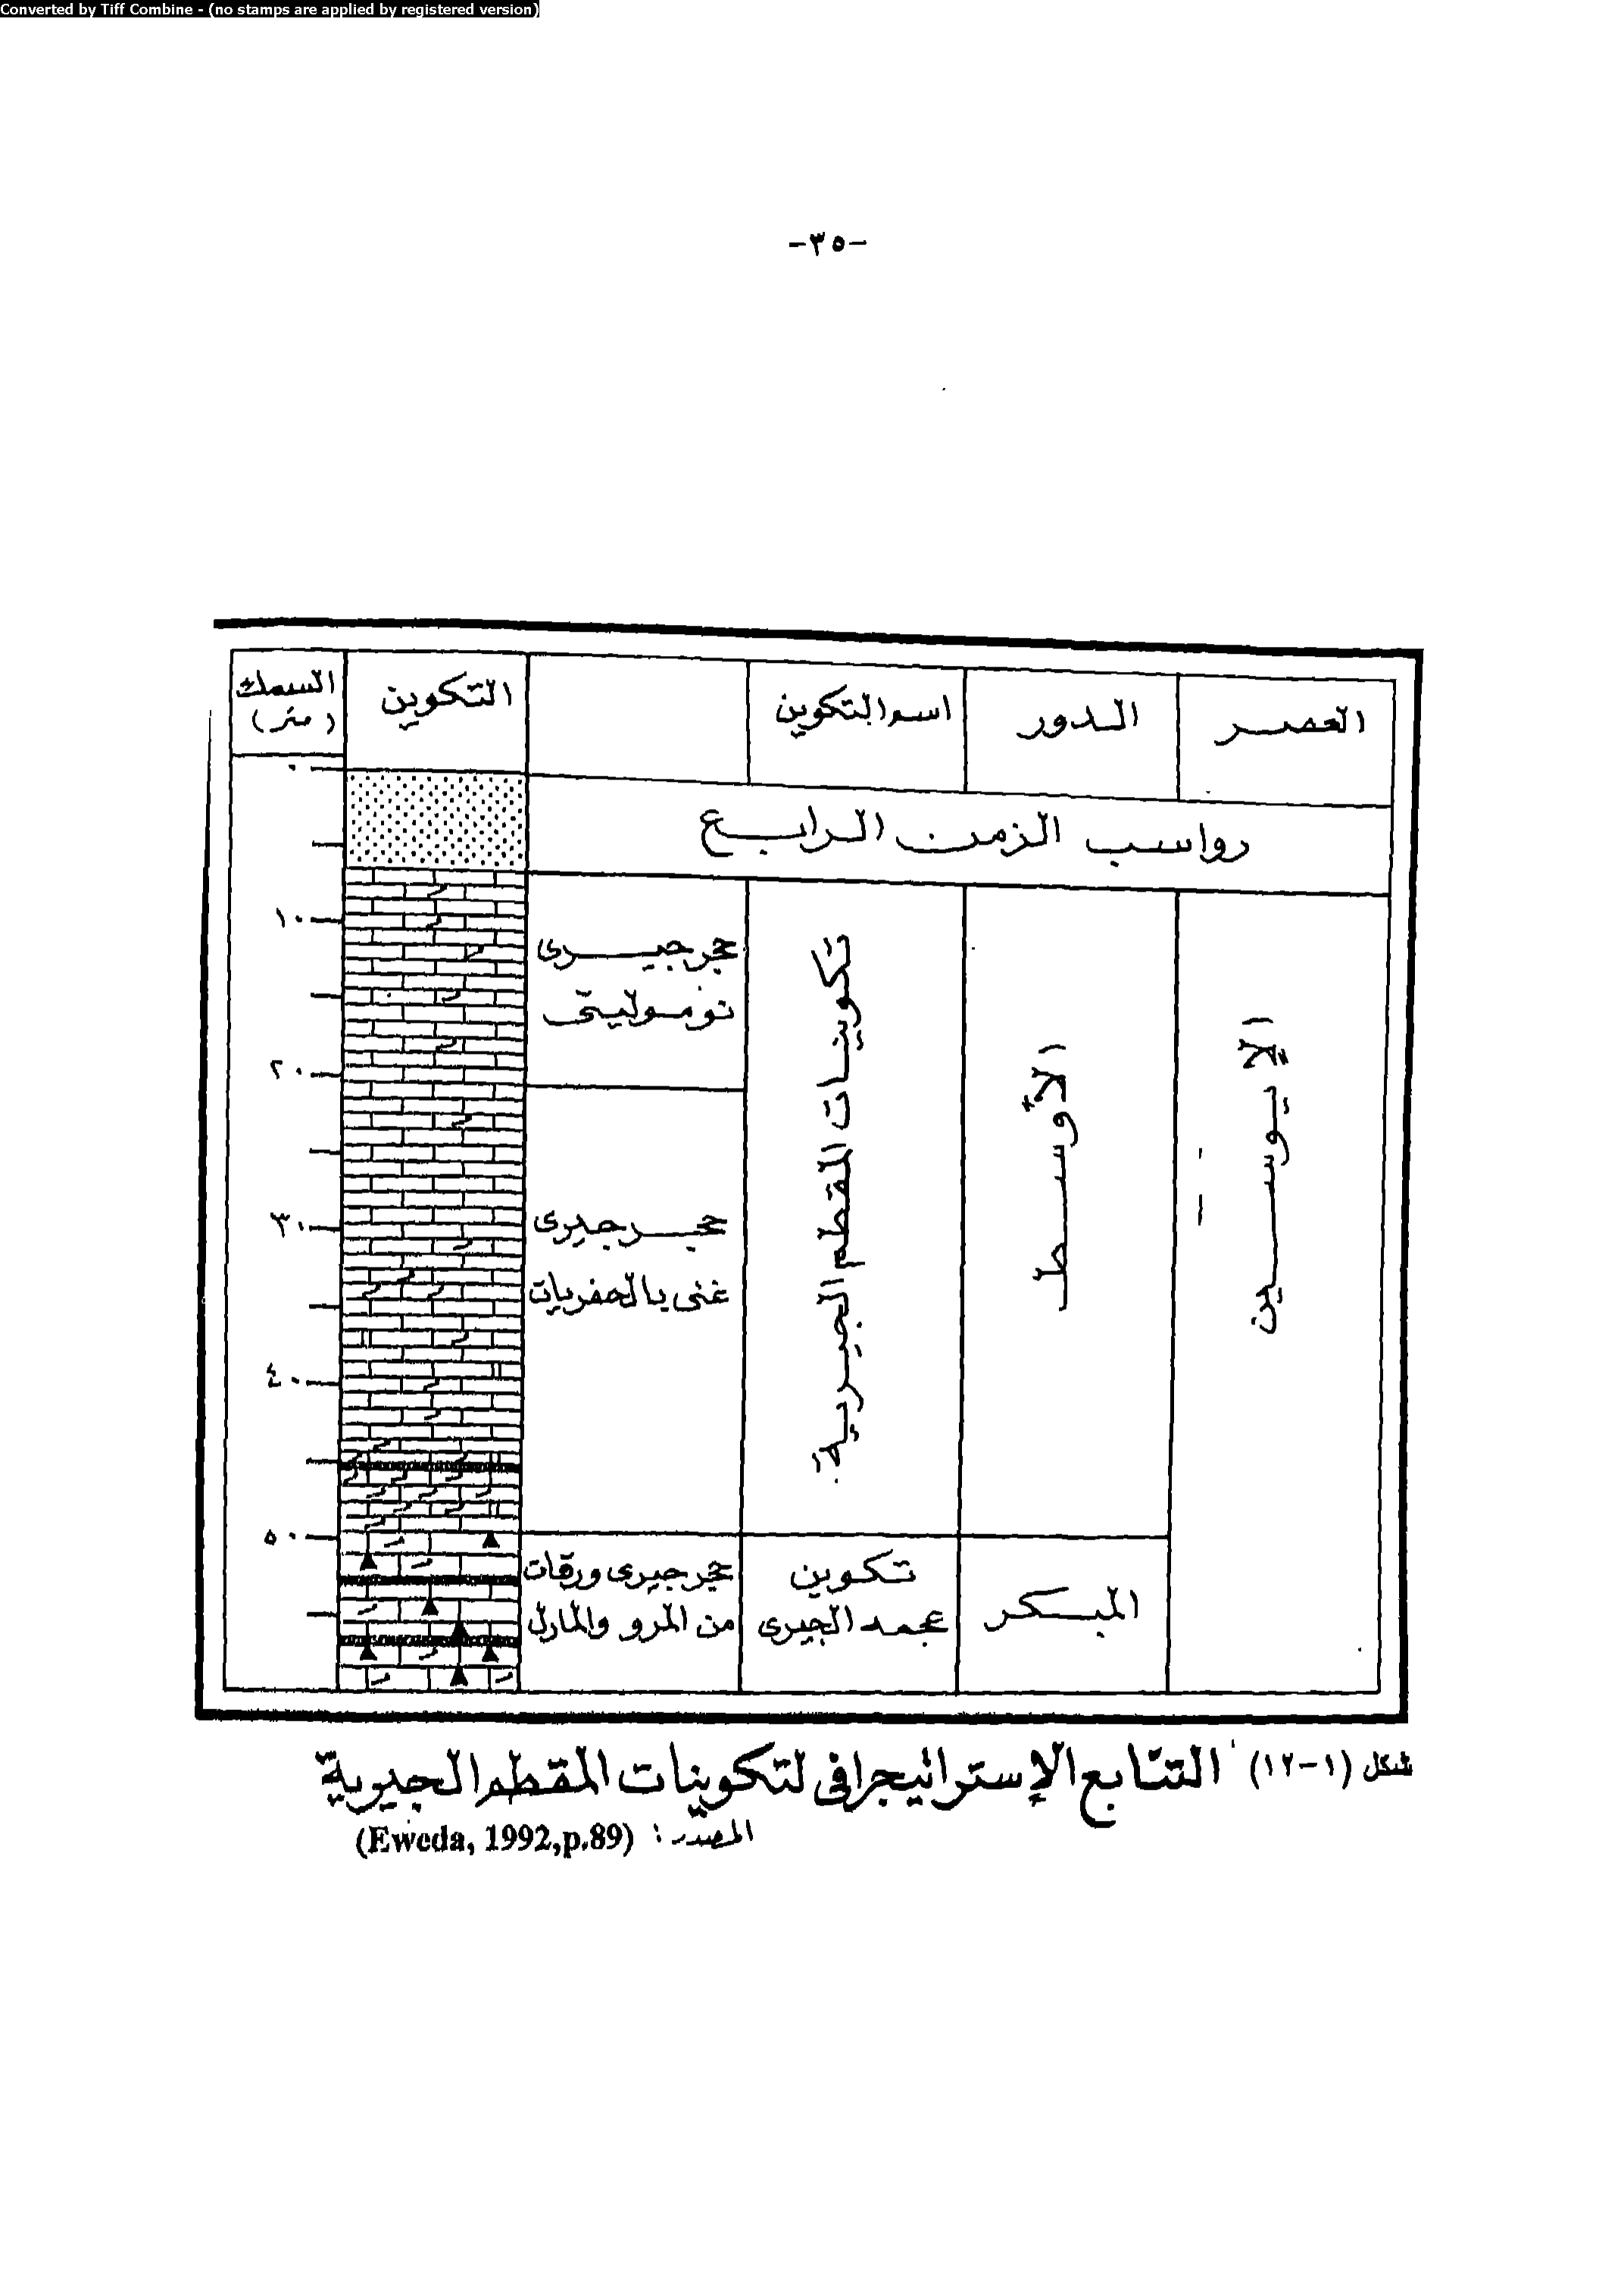 Converted by Tiff Combine - (no stamps are applied by registered version)
-٣٥-
العصر
الدور
اسم التكوين
التكوين
السمك
(متر)
٠
رواسب الزمن الرابع
١٠
٢٠
٣٠
٤٠
٥٠
الإيوسين
الأوسط
تكوينات المقطم الجيرية
حجر جيرى
نوموليتى
حجر جيرى
غنى بالحفريات
المبكر
تكوين
الجيرى
حجر جيرى ورقات
من المرو والمارل
شكل (١-١٢) التتابع الإستراتيجرافى لتكوينات المقطم الجيرية
المصدر: (Eweda, 1992,p.89)